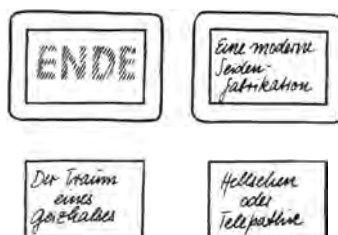 ENDE
Eine moderne
Seiden-
fabrikation
Der Traum
eines
Geizhalses
Hellsehen
oder
Telepathie